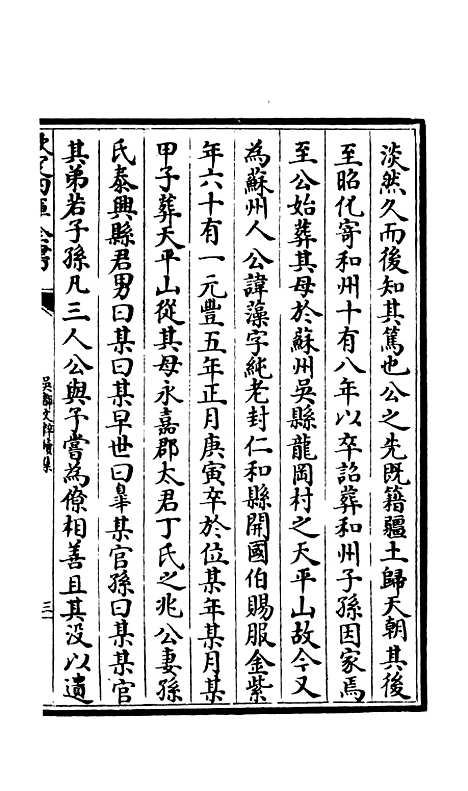 淡然久而後知其篤也公之先既籍疆土歸天朝其後
至昭化寄和州十有八年以卒詔葬和州子孫因家焉
至公始葬其母於蘇州吳縣龍岡村之天平山故今又
為蘇州人公諱藻字純老封仁和縣開國伯賜服金紫
年六十有一元豐五年正月庚寅卒於位某年某月某
甲子葬天平山從其母永嘉郡太君丁氏之兆公妻孫
氏泰興縣君男曰某曰某早世曰皐某官孫曰某某官
其弟若子孫凡三人公與予嘗為僚相善且其没以遺
吳都文粹續集
三